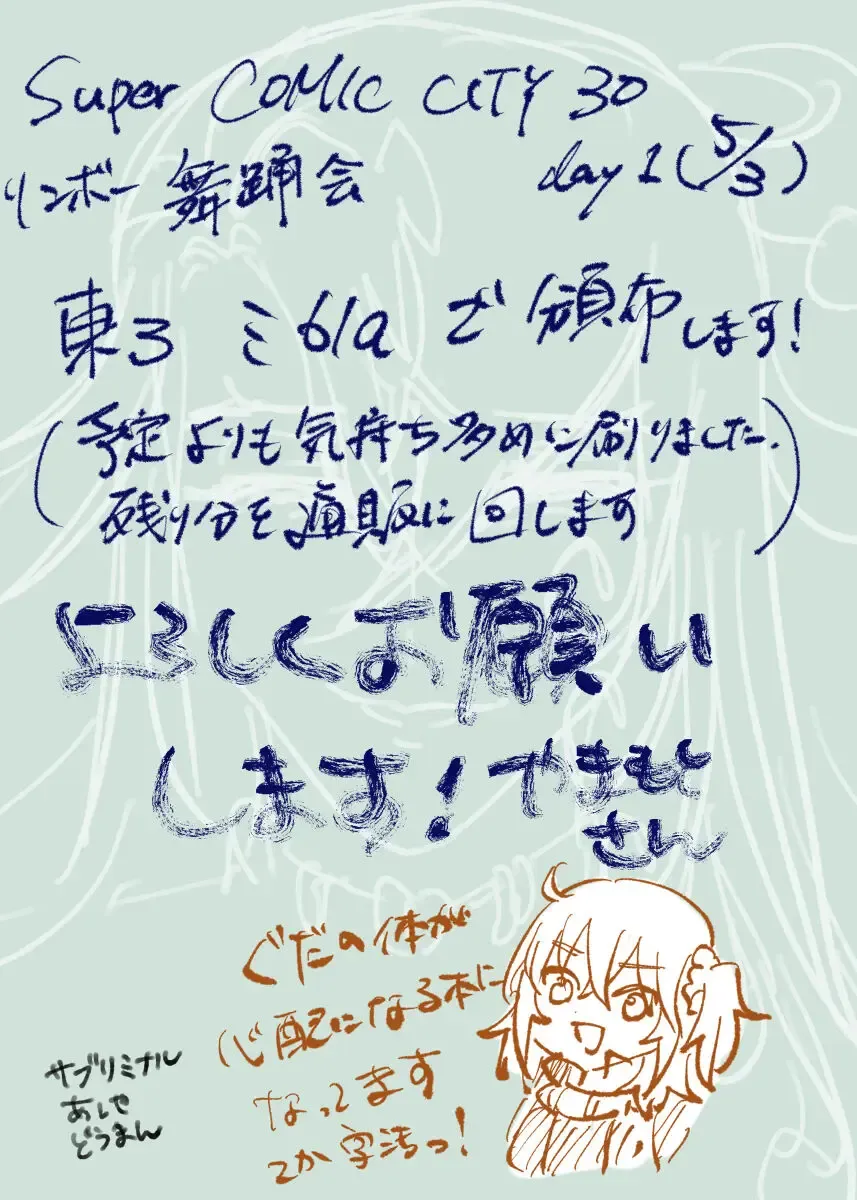 Super COMIC CITY 30
リンボー舞踊会
day1(5/3)
東3 ミ61a で頒布します!
(予定よりも気持ち多めに刷りました.
残り分を通販に回します)
よろしくお願い
します!やまもと
さん
ぐだの体が
心配になる本に
なってます
てか字汚っ!
サブリミナル
あしや
どうまん